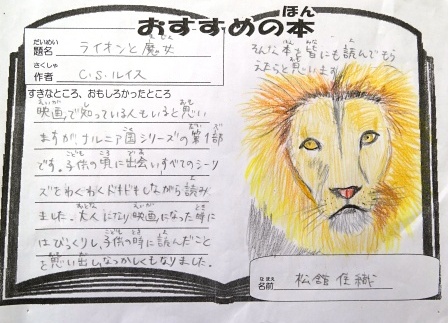 おすすめの本
ほん
だいめい
題名
ライオンと魔女
さくしゃ
作者
C・S・ルイス
すきなところ、おもしろかったところ
映画で知っている人もいると思い
ますが、ナルニア国シリーズの第1部
です。子供の頃に出会いすべてのシーリ
ズをわくわくドキドキしながら読み
ました。大人になり映画になった時に
はびっくりし、子供の時に読んだこと
を思い出し、なつかしくもなりました。
そんな本を皆にも読んでもら
えたらと思います
なまえ
名前
松舘佳織